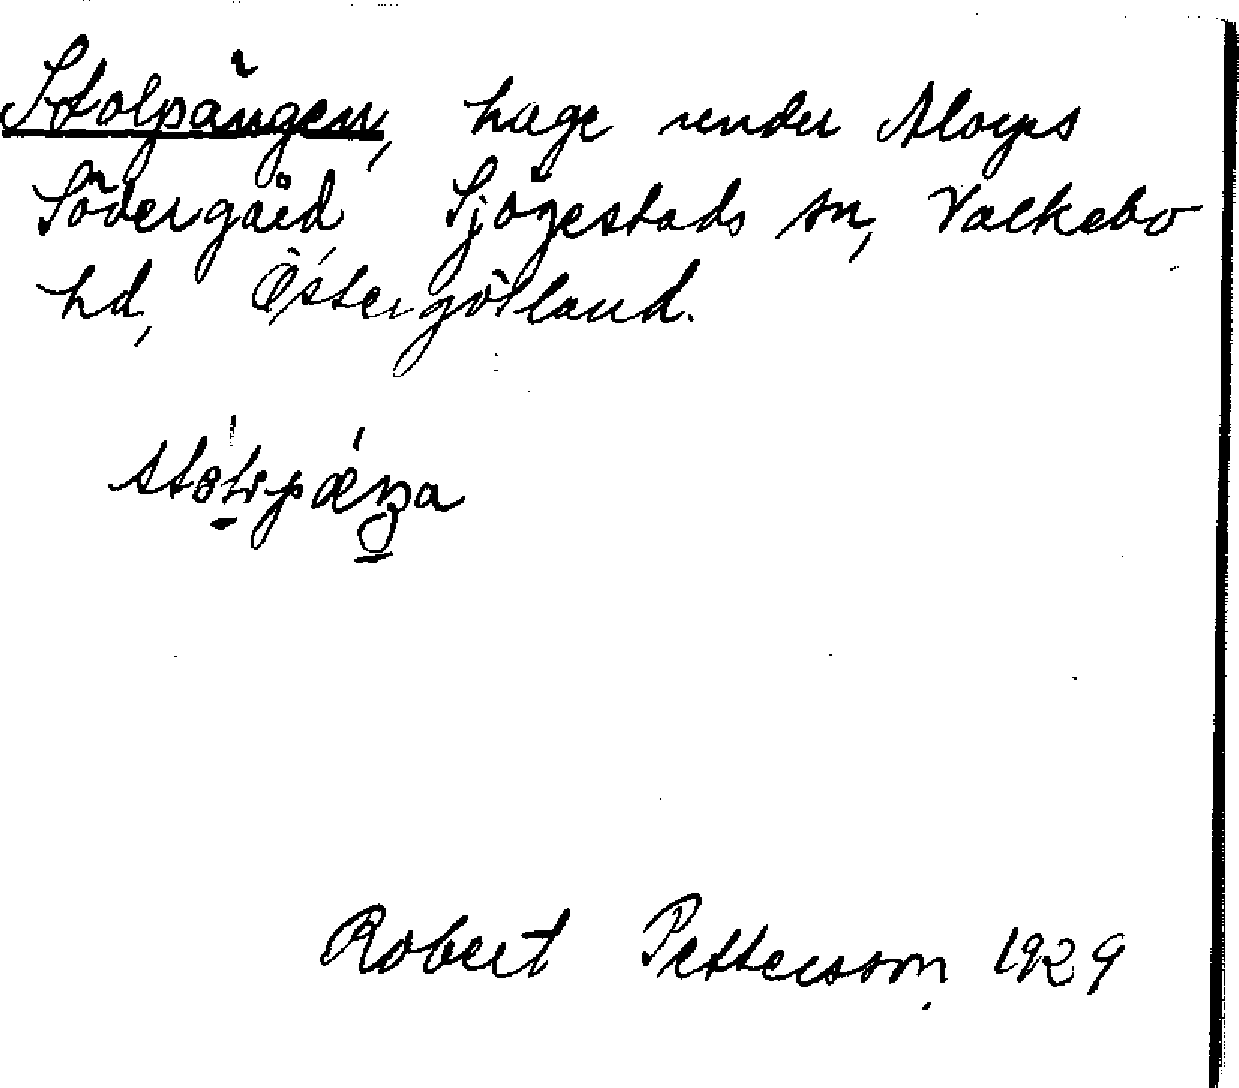 Stolpängen, hage under Aloys
Södergård, Sjögestads sn, Valkebo
hd, Östergötland.
Robert Petterson 1929